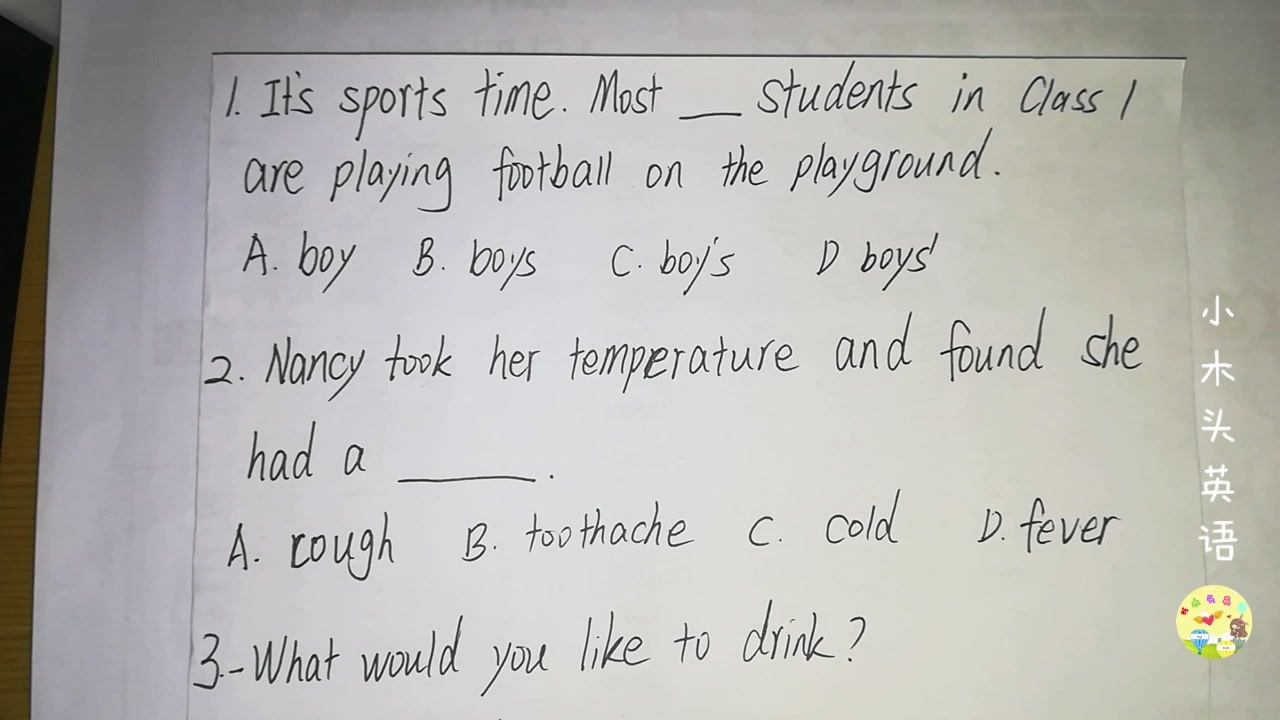 1. It's sports time. Most __ students in Class 1
are playing football on the playground.
A. boy B. boys C. boy's D boys'
2. Nancy took her temperature and found she
had a ____.
A. cough B. toothache C. cold D. fever
3.-What would you like to drink?
小木头英语